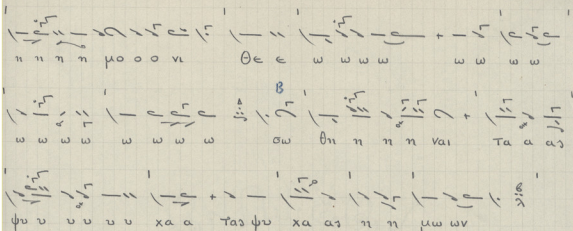 η η η η μο ο ο νι Θε ε ω ω ω ω ω ω ω ω
ω ω ω ω ω ω ω ω Β σω θη η η η ναι τα α ας
ψυ υ υ υ υ υ χα α τας ψυ χα ας η η μω ων